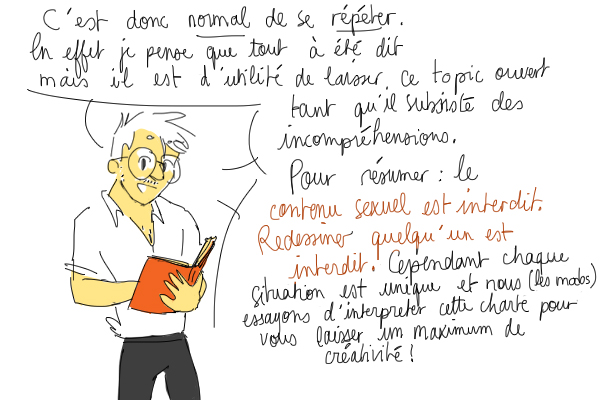 C'est donc normal de se répéter.
En effet je pense que tout à été dit
mais il est d'utilité de laisser ce topic ouvert
tant qu'il subsiste des
incompréhensions.
Pour résumer : le
contenu sexuel est interdit.
Redessiner quelqu'un est
interdit. Cependant chaque
situation est unique et nous (les modos)
essayons d'interpreter cette charte pour
vous laisser un maximum de
créativité !